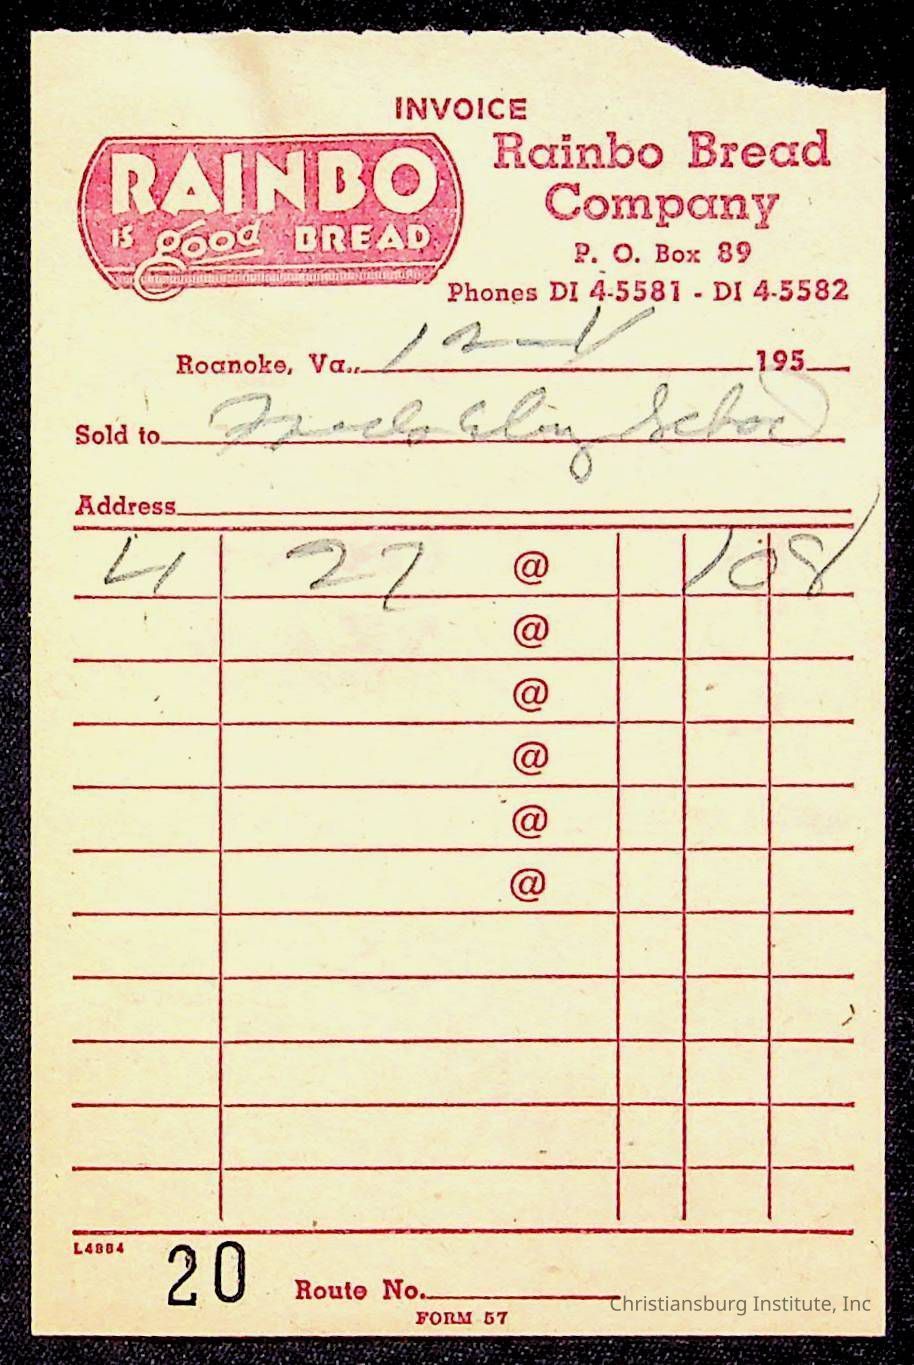 INVOICE
RAINBO
IS good BREAD
Rainbo Bread
Company
P. O. Box 89
Phones DI 4-5581 - DI 4-5582
Roanoke, Va., 12-1 195
Sold to School
Address
4 27 @ 108
@
@
@
@
@
L4884
20 Route No.
FORM 57
Christiansburg Institute, Inc